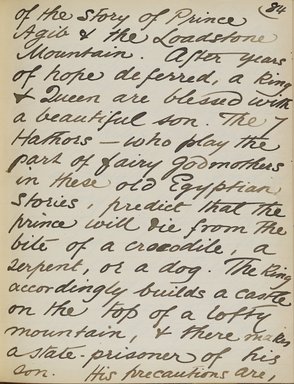 84
of the story of Prince
Agib & the Loadstone
Mountain. After years
of hope deferred, a King
& Queen are blessed with
a beautiful son. The 7
Hathors – who play the
part of fairy godmothers
in these old Egyptian
stories, predict that the
prince will die from the
bite of a crocodile, a
serpent, or a dog. The King
accordingly builds a castle
on the top of a lofty
mountain, & there makes
a state-prisoner of his
son. His precautions are,